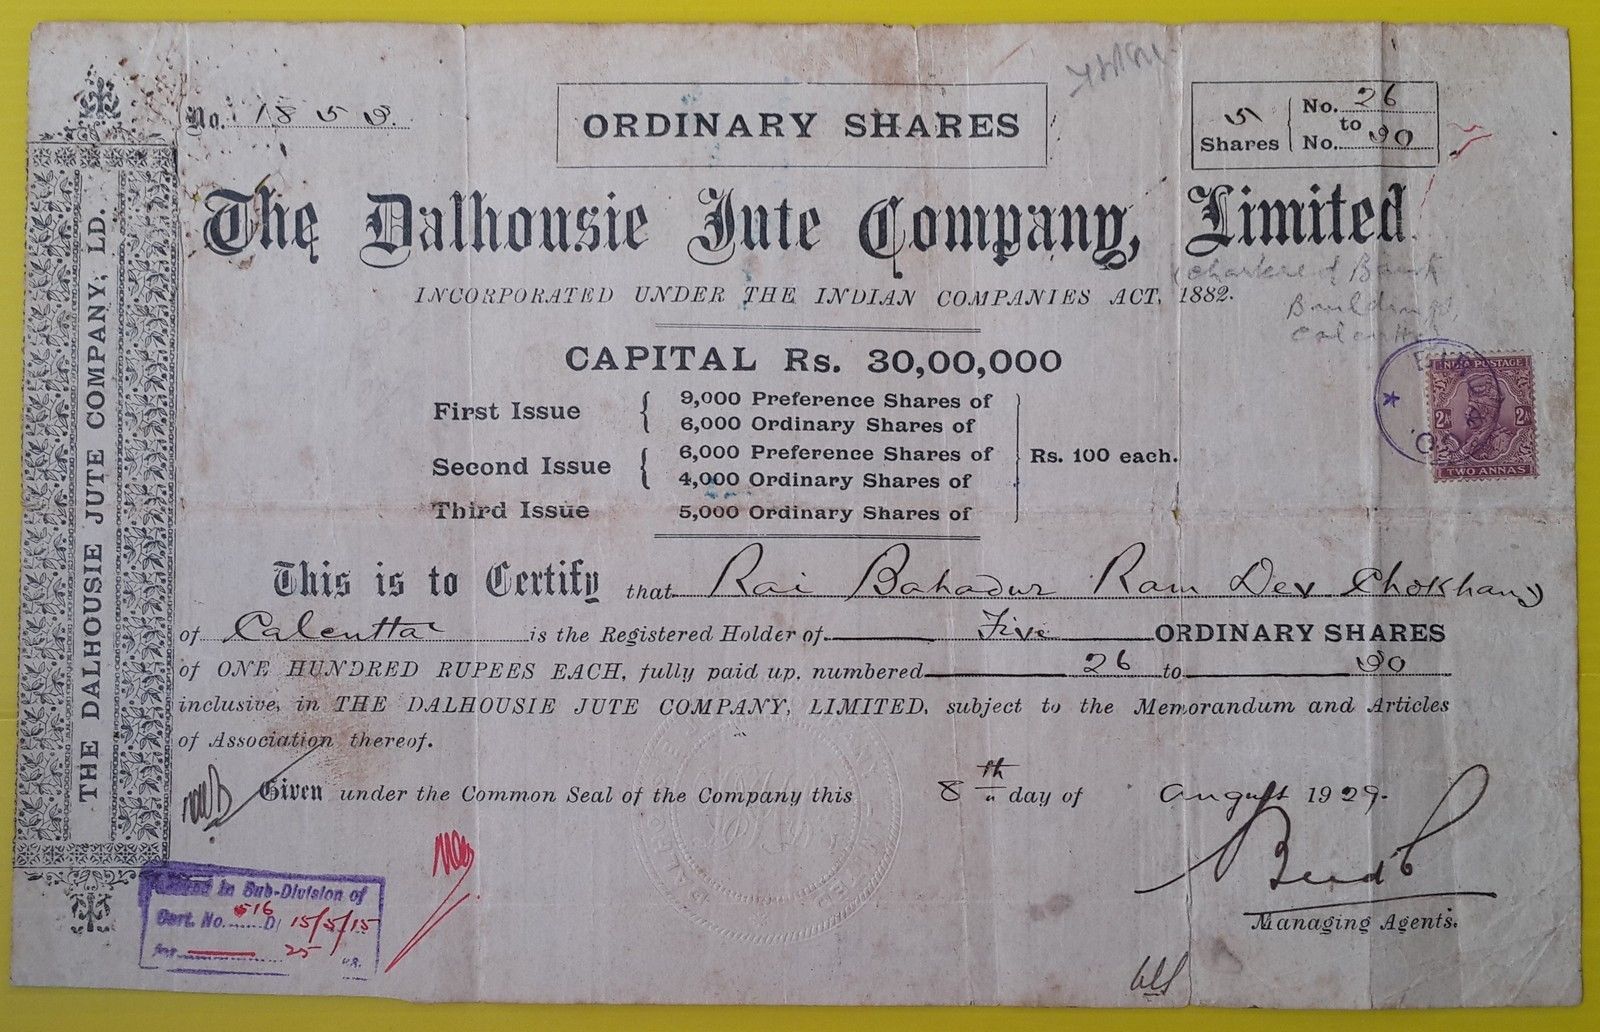 No. 1853.
ORDINARY SHARES
5 Shares { No. 26 to No. 30
The Dalhousie Jute Company, Limited.
INCORPORATED UNDER THE INDIAN COMPANIES ACT, 1882.
Chartered Bank
Buildings,
Calcutta
CAPITAL Rs. 30,00,000
First Issue { 9,000 Preference Shares of
6,000 Ordinary Shares of
Second Issue { 6,000 Preference Shares of
4,000 Ordinary Shares of
Third Issue 5,000 Ordinary Shares of
} Rs. 100 each.
INDIA POSTAGE
2As 2As
TWO ANNAS
This is to Certify that Rai Bahadur Ram Dev Chokhany
of Calcutta is the Registered Holder of Five ORDINARY SHARES
of ONE HUNDRED RUPEES EACH, fully paid up, numbered 26 to 30
inclusive, in THE DALHOUSIE JUTE COMPANY, LIMITED, subject to the Memorandum and Articles
of Association thereof.
Given under the Common Seal of the Company this 8th day of August 1929.
Managing Agents.
Issued in Sub-Division of
Cert. No. 516 D/ 15/5/15
for 25
THE DALHOUSIE JUTE COMPANY, LD.